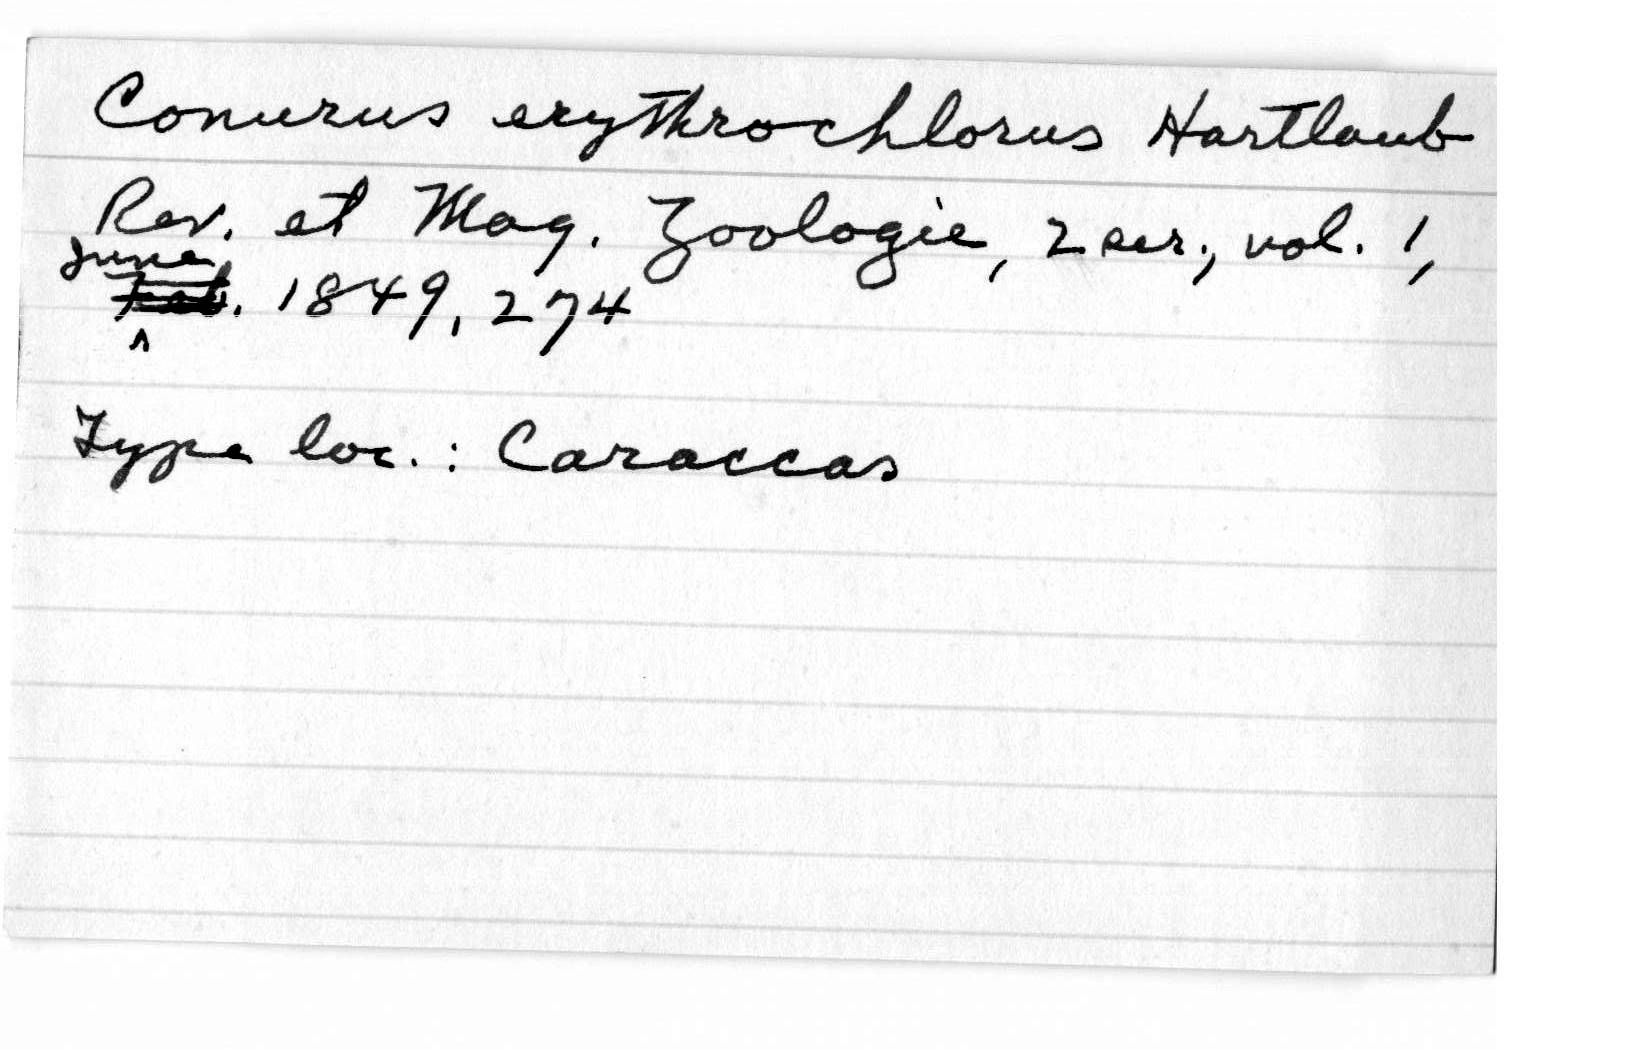 Conurus erythrochlorus Hartlaub
Rev. et Mag. Zoologie, 2 ser., vol. 1,
June
Feb. 1849, 274
^
Type loc. : Caraccas